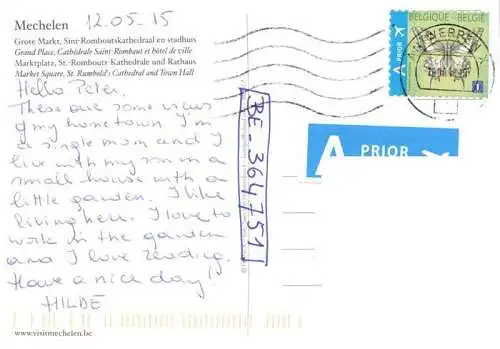 Mechelen
12.05-15
Grote Markt, Sint-Romboutskathedraal en stadhuis
Grand Place, Cathédrale Saint-Rombaut et hôtel de ville
Marktplatz, St.-Rombouts Kathedrale und Rathaus
Market Square, St. Rumbold's Cathedral and Town Hall
Hello Peter,
These are some views
of my hometown. I'm
a single mom and I
live with my son in a
small house with a
little garden. I like
living here. I love to
work in the garden
and I love reading.
Have a nice day!
HILDE
www.visitmechelen.be
BE-364751
BELGIQUE-BELGIË
A PRIOR
ANTWERPEN
1
A PRIOR